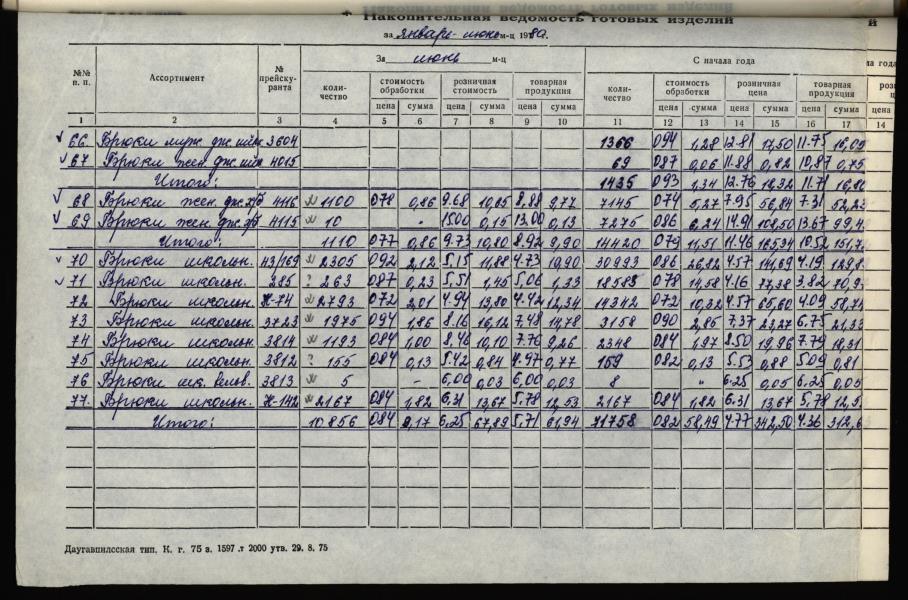 Накопительная ведомость готовых изделий й
за январь-июнь м-ц 198 г.
За июнь м-ц С начала года на года
№№ п. п. Ассортимент № прейскуранта коли-чество стоимость обработки розничная стоимость товарная продукция коли-чество стоимость обработки розничная цена товарная продукция
цена сумма цена сумма цена сумма цена сумма цена сумма цена сумма
1 2 3 4 5 6 7 8 9 10 11 12 13 14 15 16 17 14
66 Брюки муж. дж. 3604 1366 094 1,28 12.81 17,50 11.75 16,05
67 Брюки жен. дж. 4015 69 087 0,06 11.88 0,82 10,87 0,75
Итого: 1435 093 1,34 12.76 18,32 11.71 16,80
68 Брюки жен. дж. 4116 1100 078 0,86 9.68 10,65 8.88 9,77 7145 074 5,27 7.95 56,84 7.31 52,23
69 Брюки жен. дж. 4115 10 1500 0,15 13,00 0,13 7275 086 6,24 14.91 108,50 13.67 99,4
Итого: 1110 077 0,86 9.73 10,80 8.92 9,90 14420 079 11,51 11.46 165,34 10.52 151,7
70 Брюки школьн. 43/169 2305 092 2,12 5.15 11,88 4.73 10,90 30993 086 26,82 4.57 141,69 4.19 129,8
71 Брюки школьн. 385 ? 263 087 0,23 5,51 1,45 5,06 1,33 18585 078 14,58 4.16 77,38 3.82 70,9
72 Брюки школьн. Н-74 2793 072 2,01 4.94 13,80 4.42 12,34 14342 072 10,32 4.57 65,60 4.09 58,72
73 Брюки школьн. 3723 1975 094 1,86 8.16 16,12 7.48 14,78 3158 090 2,85 7.37 23,27 6.75 21,33
74 Брюки школьн. 3814 1193 084 1,00 8.46 10,10 7.76 9,26 2348 084 1,97 8.50 19,96 7.79 18,31
75 Брюки школьн. 3812 ? 155 084 0,13 5.42 0,84 4.97 0,77 159 082 0,13 5.53 0,88 5.09 0,81
76 Брюки шк. вельв. 3813 5 - 6,00 0,03 6,00 0,03 8 " 6.25 0,05 6.25 0,05
77. Брюки школьн. Н-142 2167 084 1,82 6.31 13,67 5.78 12,53 2167 084 1,82 6.31 13,67 5.78 12,5
Итого: 10.856 084 9,17 6.25 67,89 5.71 61,94 71758 082 58,49 4.77 342,50 4.36 312,6
Даугавпилсская тип. К. г. 75 з. 1597 т 2000 утв. 29. 8. 75